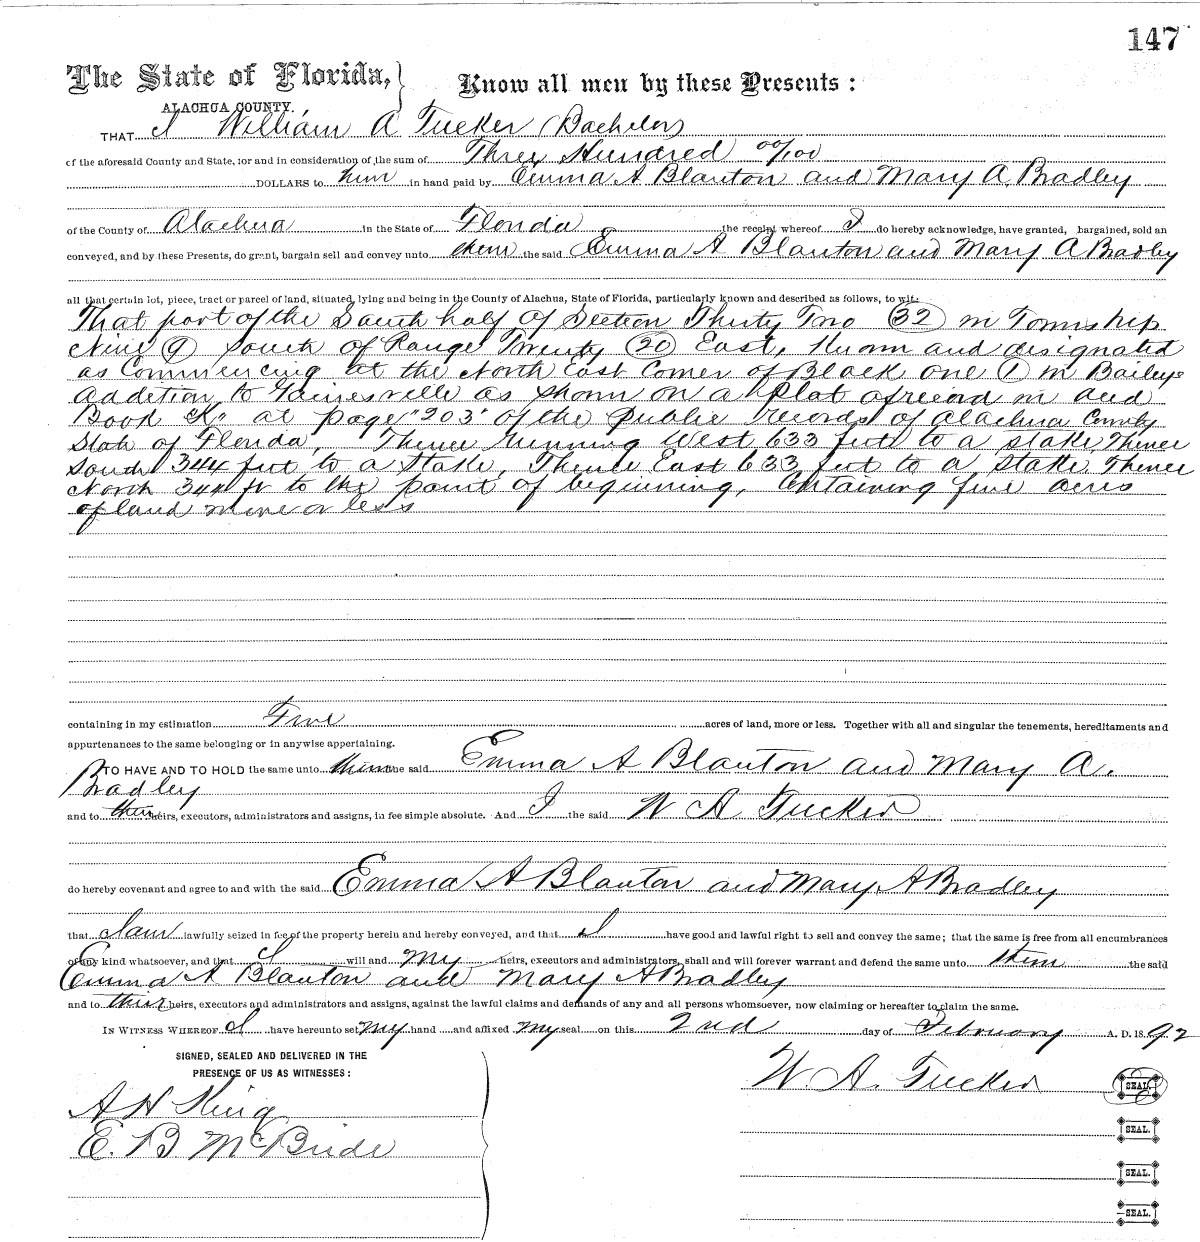 147
The State of Florida,} Know all men by these Presents:
ALACHUA COUNTY.
THAT I William A Tucker (Bachelor)
of the aforesaid County and State, for and in consideration of the sum of Three Hundred 00/100
DOLLARS to him in hand paid by Emma A Blanton and Mary A. Bradley
of the County of Alachua in the State of Florida the receipt whereof I do hereby acknowledge, have granted, bargained, sold an
conveyed, and by these Presents, do grant, bargain sell and convey unto them the said Emma A Blanton and Mary A Bradley
all that certain lot, piece, tract or parcel of land, situated, lying and being in the County of Alachua, State of Florida, particularly known and described as follows, to wit:
That part of the South half of Section Thirty Two (32) in Township
Nine (9) South of Range Twenty (20) East, Known and designated
as Commencing at the North East Corner of Block one (1) in Baileys
addition to Gainesville as shown on a Plat of record in deed
Book "K" at page "203" of the public records of Alachua County
State of Florida, Thence running West 633 feet to a stake, Thence
South 344 feet to a Stake, Thence East 633 feet to a stake, Thence
North 344 ft to the point of beginning, Containing five acres
of land more or less
containing in my estimation Five acres of land, more or less. Together with all and singular the tenements, hereditaments and
appurtenances to the same belonging or in anywise appertaining.
TO HAVE AND TO HOLD the same unto them the said Emma A Blanton and Mary A.
Bradley
and to their heirs, executors, administrators and assigns, in fee simple absolute. And I the said W A Tucker
do hereby covenant and agree to and with the said Emma A Blanton and Mary A Bradley
that I am lawfully seized in fee of the property herein and hereby conveyed, and that I have good and lawful right to sell and convey the same; that the same is free from all encumbrances
of any kind whatsoever, and that I will and my heirs, executors and administrators, shall and will forever warrant and defend the same unto them the said
Emma A Blanton and Mary A Bradley
and to their heirs, executors and administrators and assigns, against the lawful claims and demands of any and all persons whomsoever, now claiming or hereafter to claim the same.
IN WITNESS WHEREOF I have hereunto set my hand and affixed my seal on this 2nd day of February A. D. 18 92
SIGNED, SEALED AND DELIVERED IN THE
PRESENCE OF US AS WITNESSES:
W A. Tucker SEAL.
A H King
SEAL.
E. B. McBride
SEAL.
SEAL.